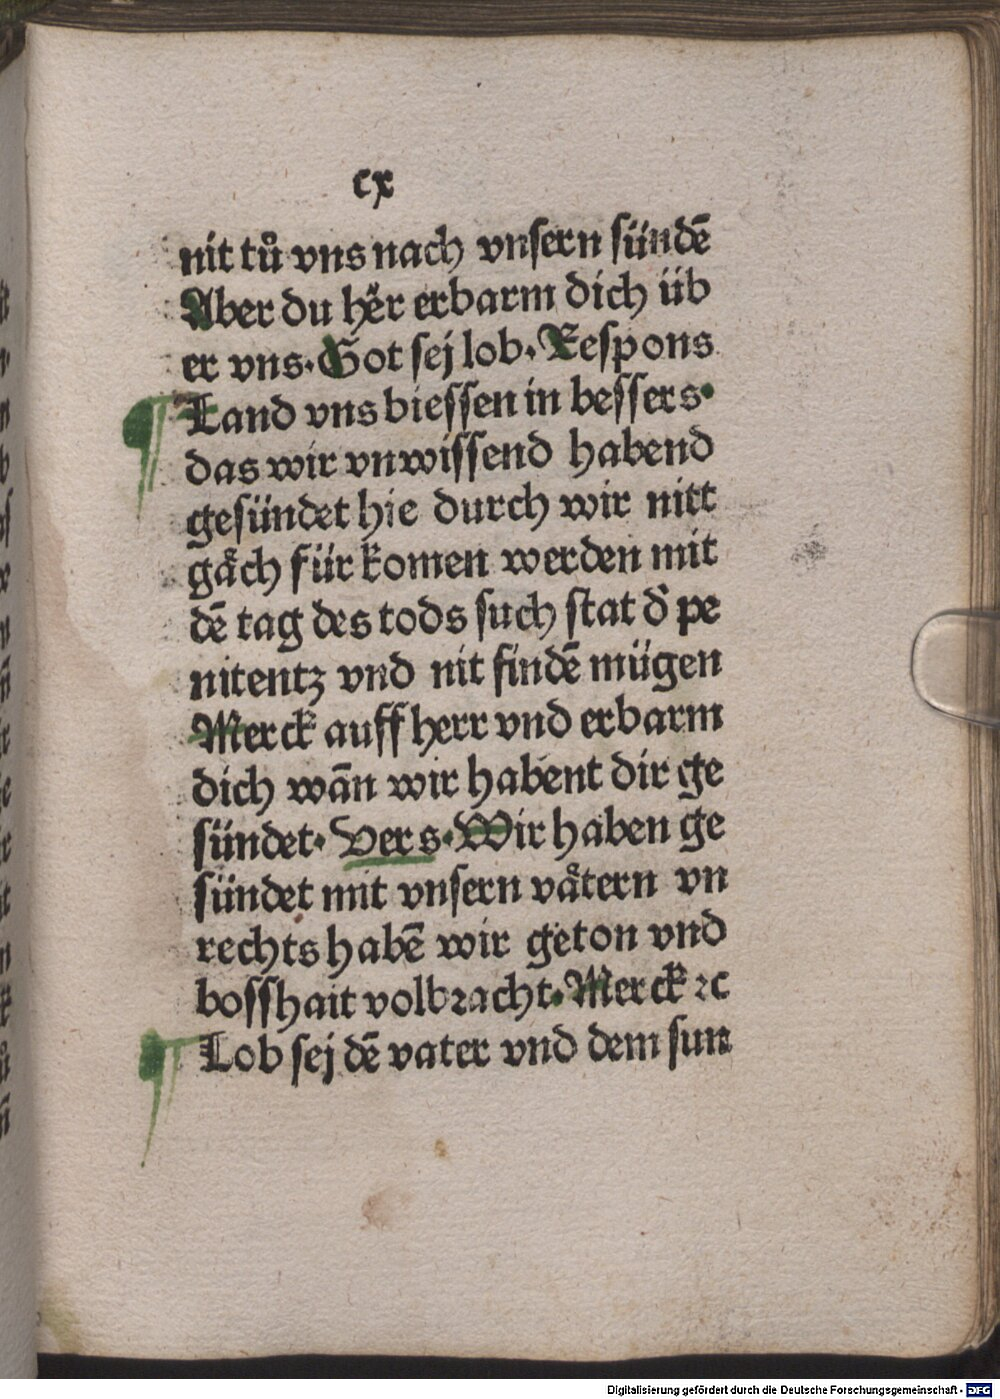 cx
nit tů vns nach vnsern sündē
Aber du hër erbarm dich üb
er vns. Got sej lob. Respons
Land vns biessen in bessers.
das wir vnwissend habend
gesündet hie durch wir nitt
gäch für komen werden mit
dē tag des tods such stat d̄ pe
nitentz vnd nit findē mügen
Merck auff herr vnd erbarm
dich wān wir habent dir ge
sündet. Vers. Wir haben ge
sündet mit vnsern vätern vn
rechts habē wir geton vnd
bosshait volbꝛacht. Merck ꝛc
Lob sej dē vater vnd dem sun
Digitalisierung gefördert durch die Deutsche Forschungsgemeinschaft - DFG